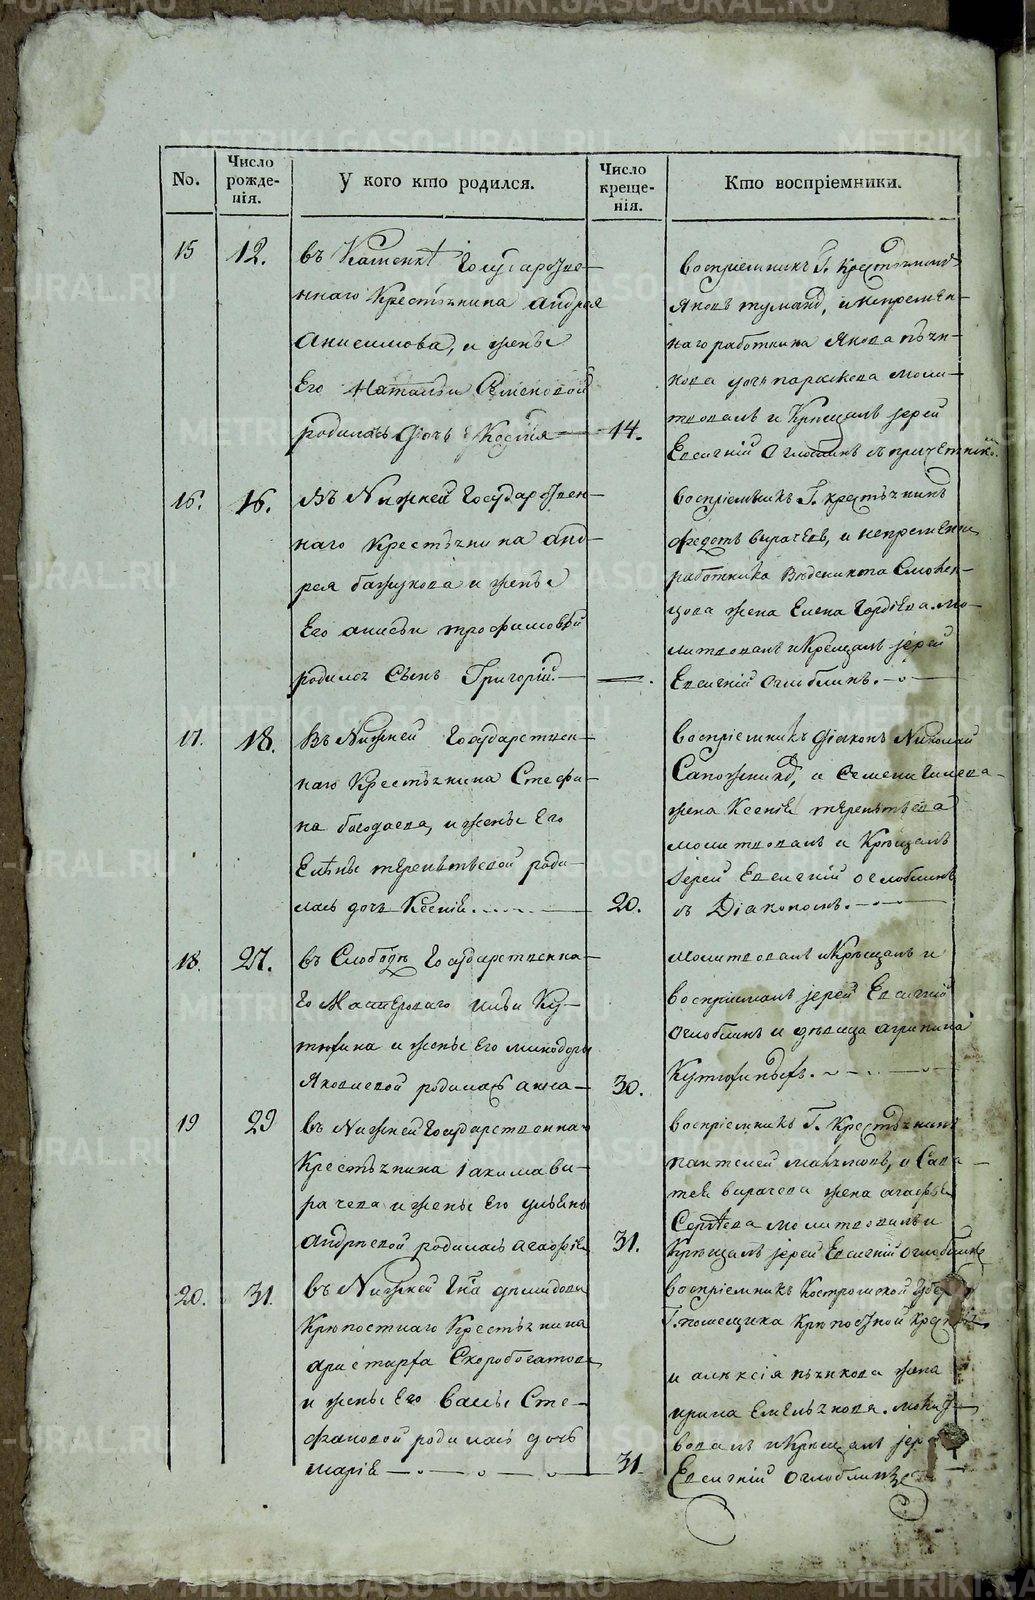 No.
Число рожде-нія.
У кого кто родился.
Число креще-нія.
Кто воспріемники.
15
12.
въ Каменкѣ Государстве-
ннаго Крестьянина Андрея
Анисимова, и женѣ
Его Натальи Семеновой
родилась дочь Ксенія
14.
воспріемникъ Г. Крестьянинъ
Яковъ, и непремен-
наго работника Якова
дочь параскева моли-
твовалъ и Крещалъ іерей
Евсигній Оглоблинъ съ причетники.
16.
16.
Въ Нижней Государствен-
наго Крестьянина Анд-
рея и женѣ
Его анисьи трофимовой
родился Сынъ Григорій.
воспріемникъ Г. крестьянинъ
Федотъ вирачевъ, и непременн
работника
жена Елена. мо-
литвовалъ и Крещалъ іерей
Евсигній Оглоблинъ.
17.
18.
Въ Нижней Государствен-
наго Крестьянина Стефа-
на богодаева, и женѣ Его
Еленѣ терентьевой роди-
лась дочь Ксенія.
20.
воспріемникъ діаконъ Николай
Сапожников, и Семена
жена Ксенія терентьева
молитвовалъ и Крещалъ
іерей Евсигній Оглоблинъ
съ Діакономъ.
18.
27.
въ Слободѣ Государственна-
го Мастероваго Ильи Ку-
тюхина и женѣ Его минодоры
Яковлевой родилась анна
30.
молитвовалъ и Крещалъ и
воспріималъ іерей Евсигній
Оглоблинъ и дѣвица агрипина
19
29
въ Нижней Государственна-
Крестьянина Іакима ви-
рачева и женѣ Его ульянѣ
Андреевой родилась агафія
31.
воспріемникъ Г. Крестьянинъ
пантелей, и Сава-
тея вирачева жена агафья
Сергѣева молитвовалъ и
Крещалъ іерей Евсигній Оглоблинъ
20.
31.
въ Нижней Гна демидова
Крѣпостнаго Крестьянина
аристарха Скоробогатова
и женѣ Его Сте-
фановой родилась дочь
марія
31
воспріемникъ Костромской губер
Г. помещика Крѣпостной Крестьян
и алексія пѣчнкова жена
ирина Емельянова. молит-
вовалъ и Крещалъ іерей
Евсигній Оглоблинъ
METRIKI.GASO-URAL.RU